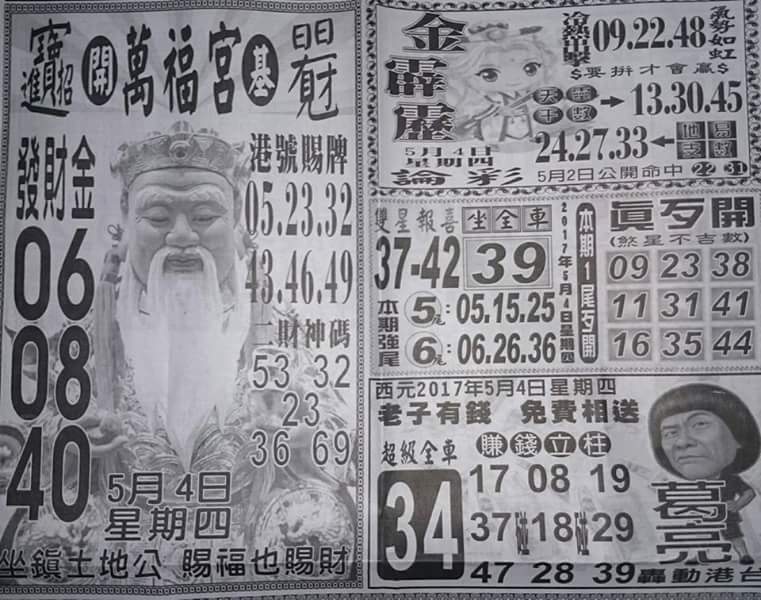 招寶進
開萬福宮基
發財金
06
08
40
港號賜牌
05.23.32
43.46.49
二財神碼
53 32
23
36 69
5月4日
星期四
坐鎮土地公 賜福也賜財
金霹靂
論彩
5月4日
星期四
冷熱出擊
09.22.48
氣勢如虹
$要拚才會贏$
天干
13.30.45
24.27.33
地支
5月2日公開命中 22 31
雙星報喜
37-42
坐全車
39
2017年5月4日星期四
本期強尾
5尾:05.15.25
6尾:06.26.36
本期1尾歹開
真歹開
(煞星不吉數)
09 23 38
11 31 41
16 35 44
西元2017年5月4日星期四
老子有錢 免費相送
超級全車
34
賺錢立柱
17 08 19
37碰18碰29
47 28 39
葛亮
轟動港台